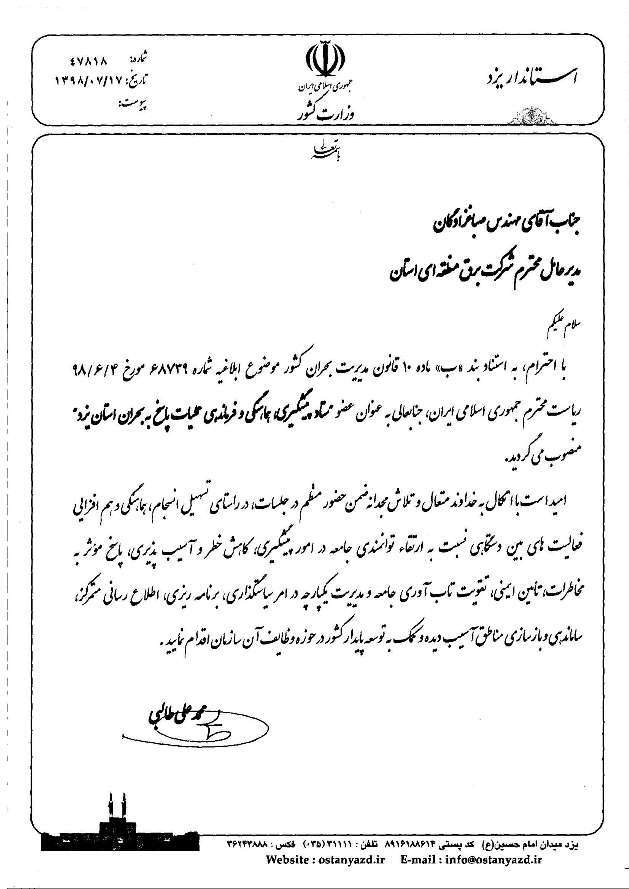 استاندار یزد
جمهوری اسلامی ایران
وزارت کشور
شماره: ٤٧٨١٨
تاریخ: ١٣٩٨/٠٧/١٧
پیوست:
باسمه تعالی
جناب آقای مهندس صباغزادگان
مدیرعامل محترم شرکت برق منطقه ای استان
سلام علیکم
با احترام، به استناد بند «ب» ماده ١٠ قانون مدیریت بحران کشور موضوع ابلاغیه شماره ٦٨٧٣٩ مورخ ٩٨/٦/٤
ریاست محترم جمهوری اسلامی ایران، جنابعالی به عنوان عضو "ستاد پیشگیری، هماهنگی و فرماندهی عملیات پاسخ به بحران استان یزد"
منصوب می گردید.
امید است با اتکال به خداوند متعال و تلاش مجدانه ضمن حضور منظم در جلسات، در راستای تسهیل انسجام، هماهنگی و هم افزایی
فعالیت های بین دستگاهی نسبت به ارتقاء توانمندی جامعه در امور پیشگیری، کاهش خطر و آسیب پذیری، پاسخ مؤثر به
مخاطرات، تأمین ایمنی، تقویت تاب آوری جامعه و مدیریت یکپارچه در امر سیاستگذاری، برنامه ریزی، اطلاع رسانی متمرکز،
ساماندهی و بازسازی مناطق آسیب دیده و کمک به توسعه پایدار کشور در حوزه وظایف آن سازمان اقدام نمایید.
محمد علی طالبی
یزد میدان امام حسین(ع) کد پستی ٨٩١٦١٨٨٦١٤ تلفن : ٣١١١١(٠٣٥) فکس : ٣٦٢٤٣٨٨٨
Website : ostanyazd.ir E-mail : info@ostanyazd.ir